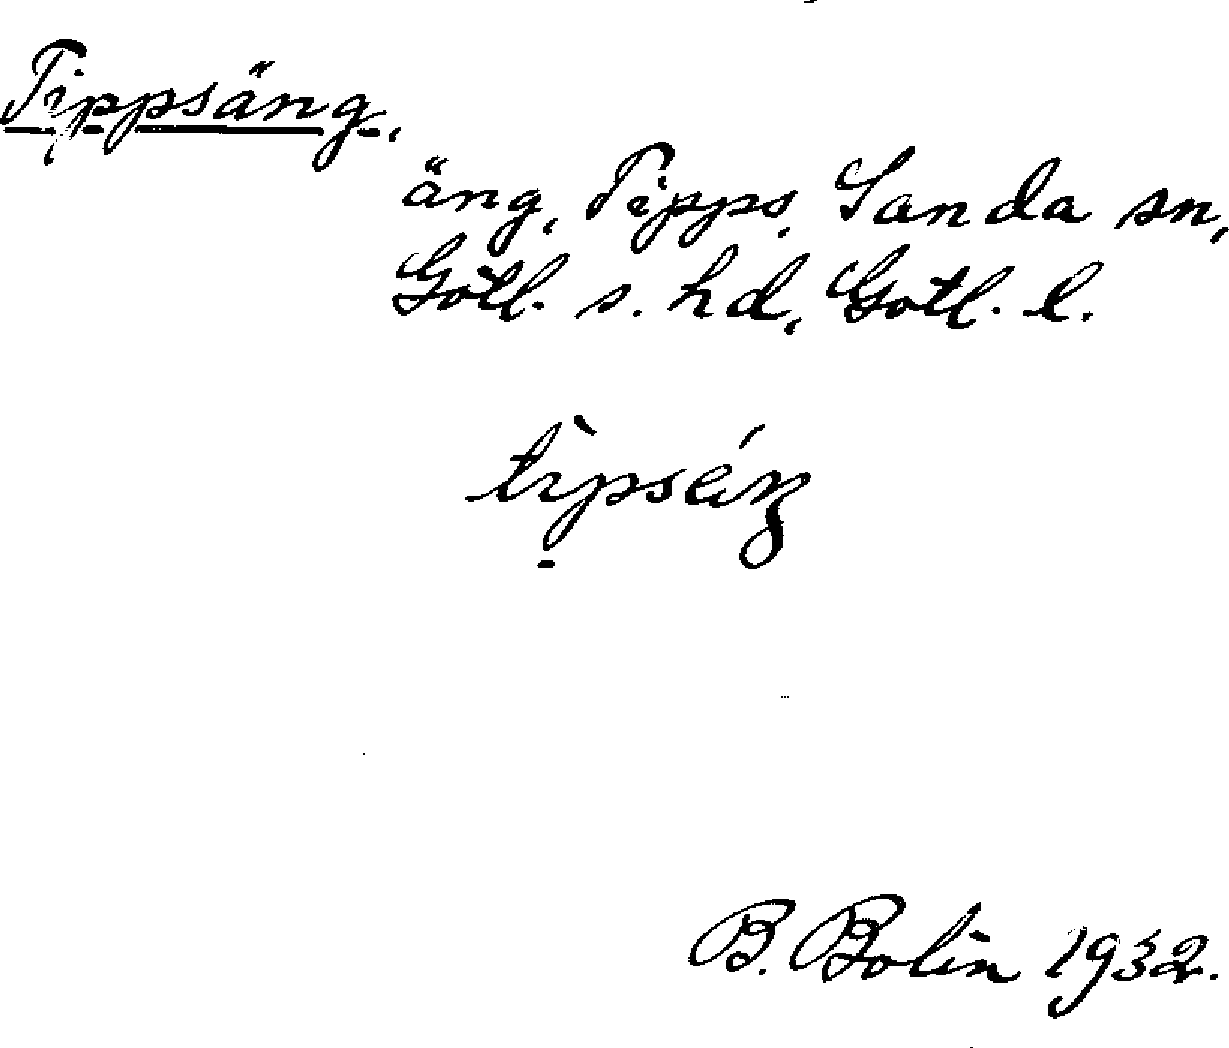 Tippsäng.
äng, Tipps, Sanda sn,
Gotl. s. hd, Gotl. l.
B. Bolin 1932.